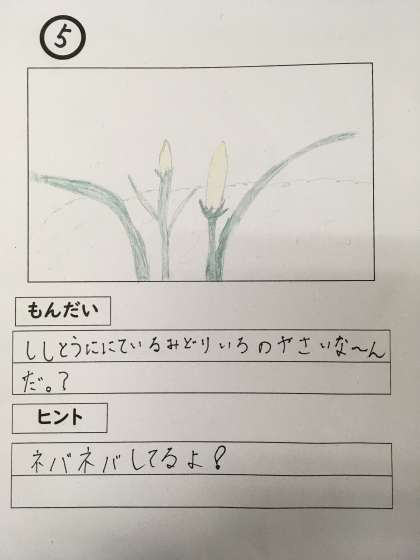 5
もんだい
ししとうににているみどりいろのやさいな〜ん
だ。?
ヒント
ネバネバしてるよ!